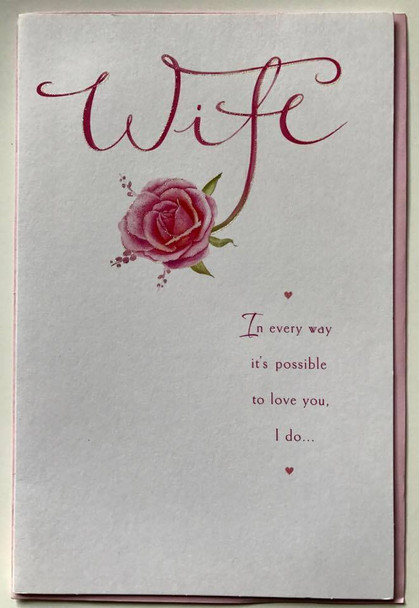 Wife
In every way
it's possible
to love you,
I do...